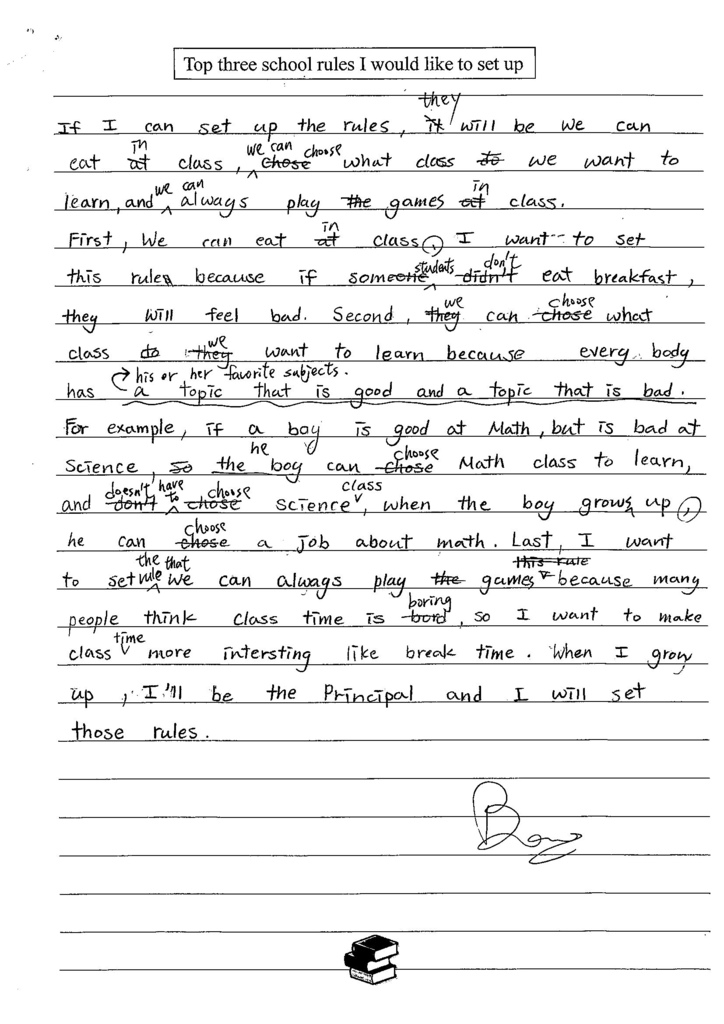 Top three school rules I would like to set up
they
If I can set up the rules, it will be we can
in we can choose
eat at class, chose what class do we want to
we can in
learn, and always play the games at class.
in
First, We can eat at class, I want to set
students don't
this rule, because if someone didn't eat breakfast,
we choose
they will feel bad. Second, they can chose what
we
class do they want to learn because every body
his or her favorite subjects.
has a topic that is good and a topic that is bad.
For example, if a boy is good at Math, but is bad at
he choose
Science, so the boy can chose Math class to learn,
doesn't have to choose class
and don't chose science, when the boy grows up,
choose
he can chose a job about math. Last, I want
the rule that this rule
to set we can always play the games because many
boring
people think class time is bord, so I want to make
time
class more intersting like break time. When I grow
up, I'll be the Principal and I will set
those rules.